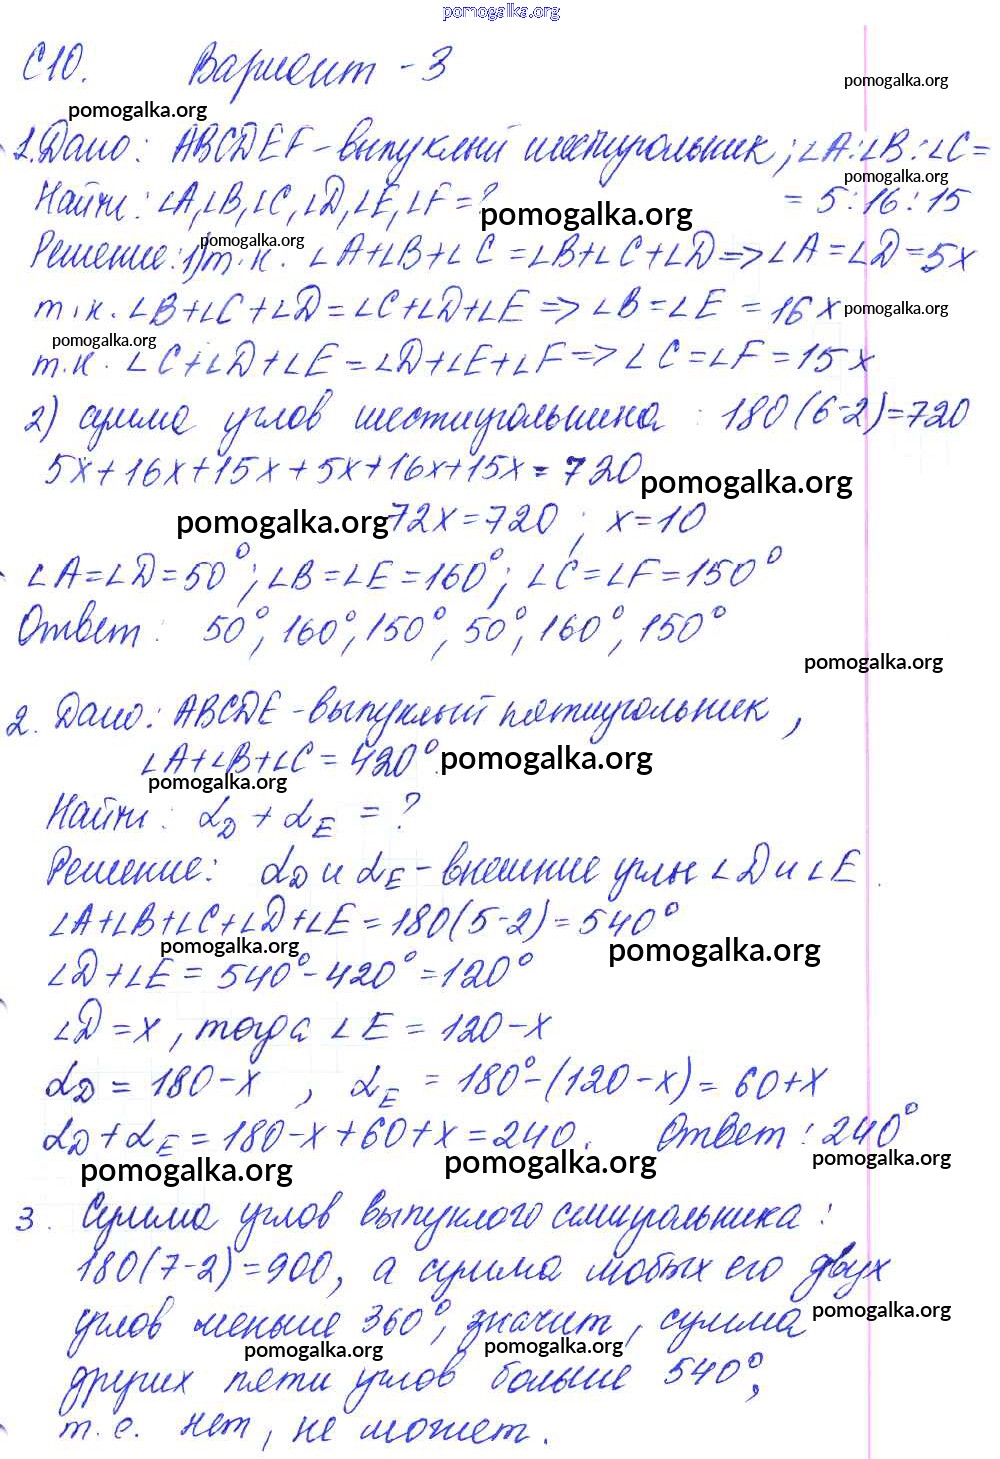 pomogalka.org
С10. Вариант - 3
pomogalka.org
pomogalka.org
1. Дано: ABCDEF - выпуклый шестиугольник; ∠A:∠B:∠C=
pomogalka.org
Найти: ∠A,∠B,∠C,∠D,∠E,∠F=? = 5:16:15
pomogalka.org
pomogalka.org
Решение: 1) т.к. ∠A+∠B+∠C=∠B+∠C+∠D=>∠A=∠D=5x
т.к. ∠B+∠C+∠D=∠C+∠D+∠E=>∠B=∠E=16x
pomogalka.org
pomogalka.org
т.к. ∠C+∠D+∠E=∠D+∠E+∠F=>∠C=∠F=15x
2) сумма углов шестиугольника: 180(6-2)=720
5x+16x+15x+5x+16x+15x=720
pomogalka.org
pomogalka.org
72x=720; x=10
∠A=∠D=50°; ∠B=∠E=160°; ∠C=∠F=150°
Ответ: 50°, 160°, 150°, 50°, 160°, 150°
pomogalka.org
2. Дано: ABCDE - выпуклый пятиугольник,
∠A+∠B+∠C=420°.
pomogalka.org
pomogalka.org
Найти: α_D + α_E = ?
Решение: α_D и α_E - внешние углы ∠D и ∠E.
∠A+∠B+∠C+∠D+∠E=180(5-2)=540°
pomogalka.org
pomogalka.org
∠D+∠E=540°-420°=120°
∠D=x, тогда ∠E=120-x
α_D=180-x, α_E=180°-(120-x)=60+x
α_D+α_E=180-x+60+x=240. Ответ: 240°
pomogalka.org
pomogalka.org
pomogalka.org
3. Сумма углов выпуклого семиугольника:
180(7-2)=900, а сумма любых его двух
углов меньше 360°, значит, сумма
pomogalka.org
pomogalka.org
pomogalka.org
других пяти углов больше 540°,
т.е. нет, не может.